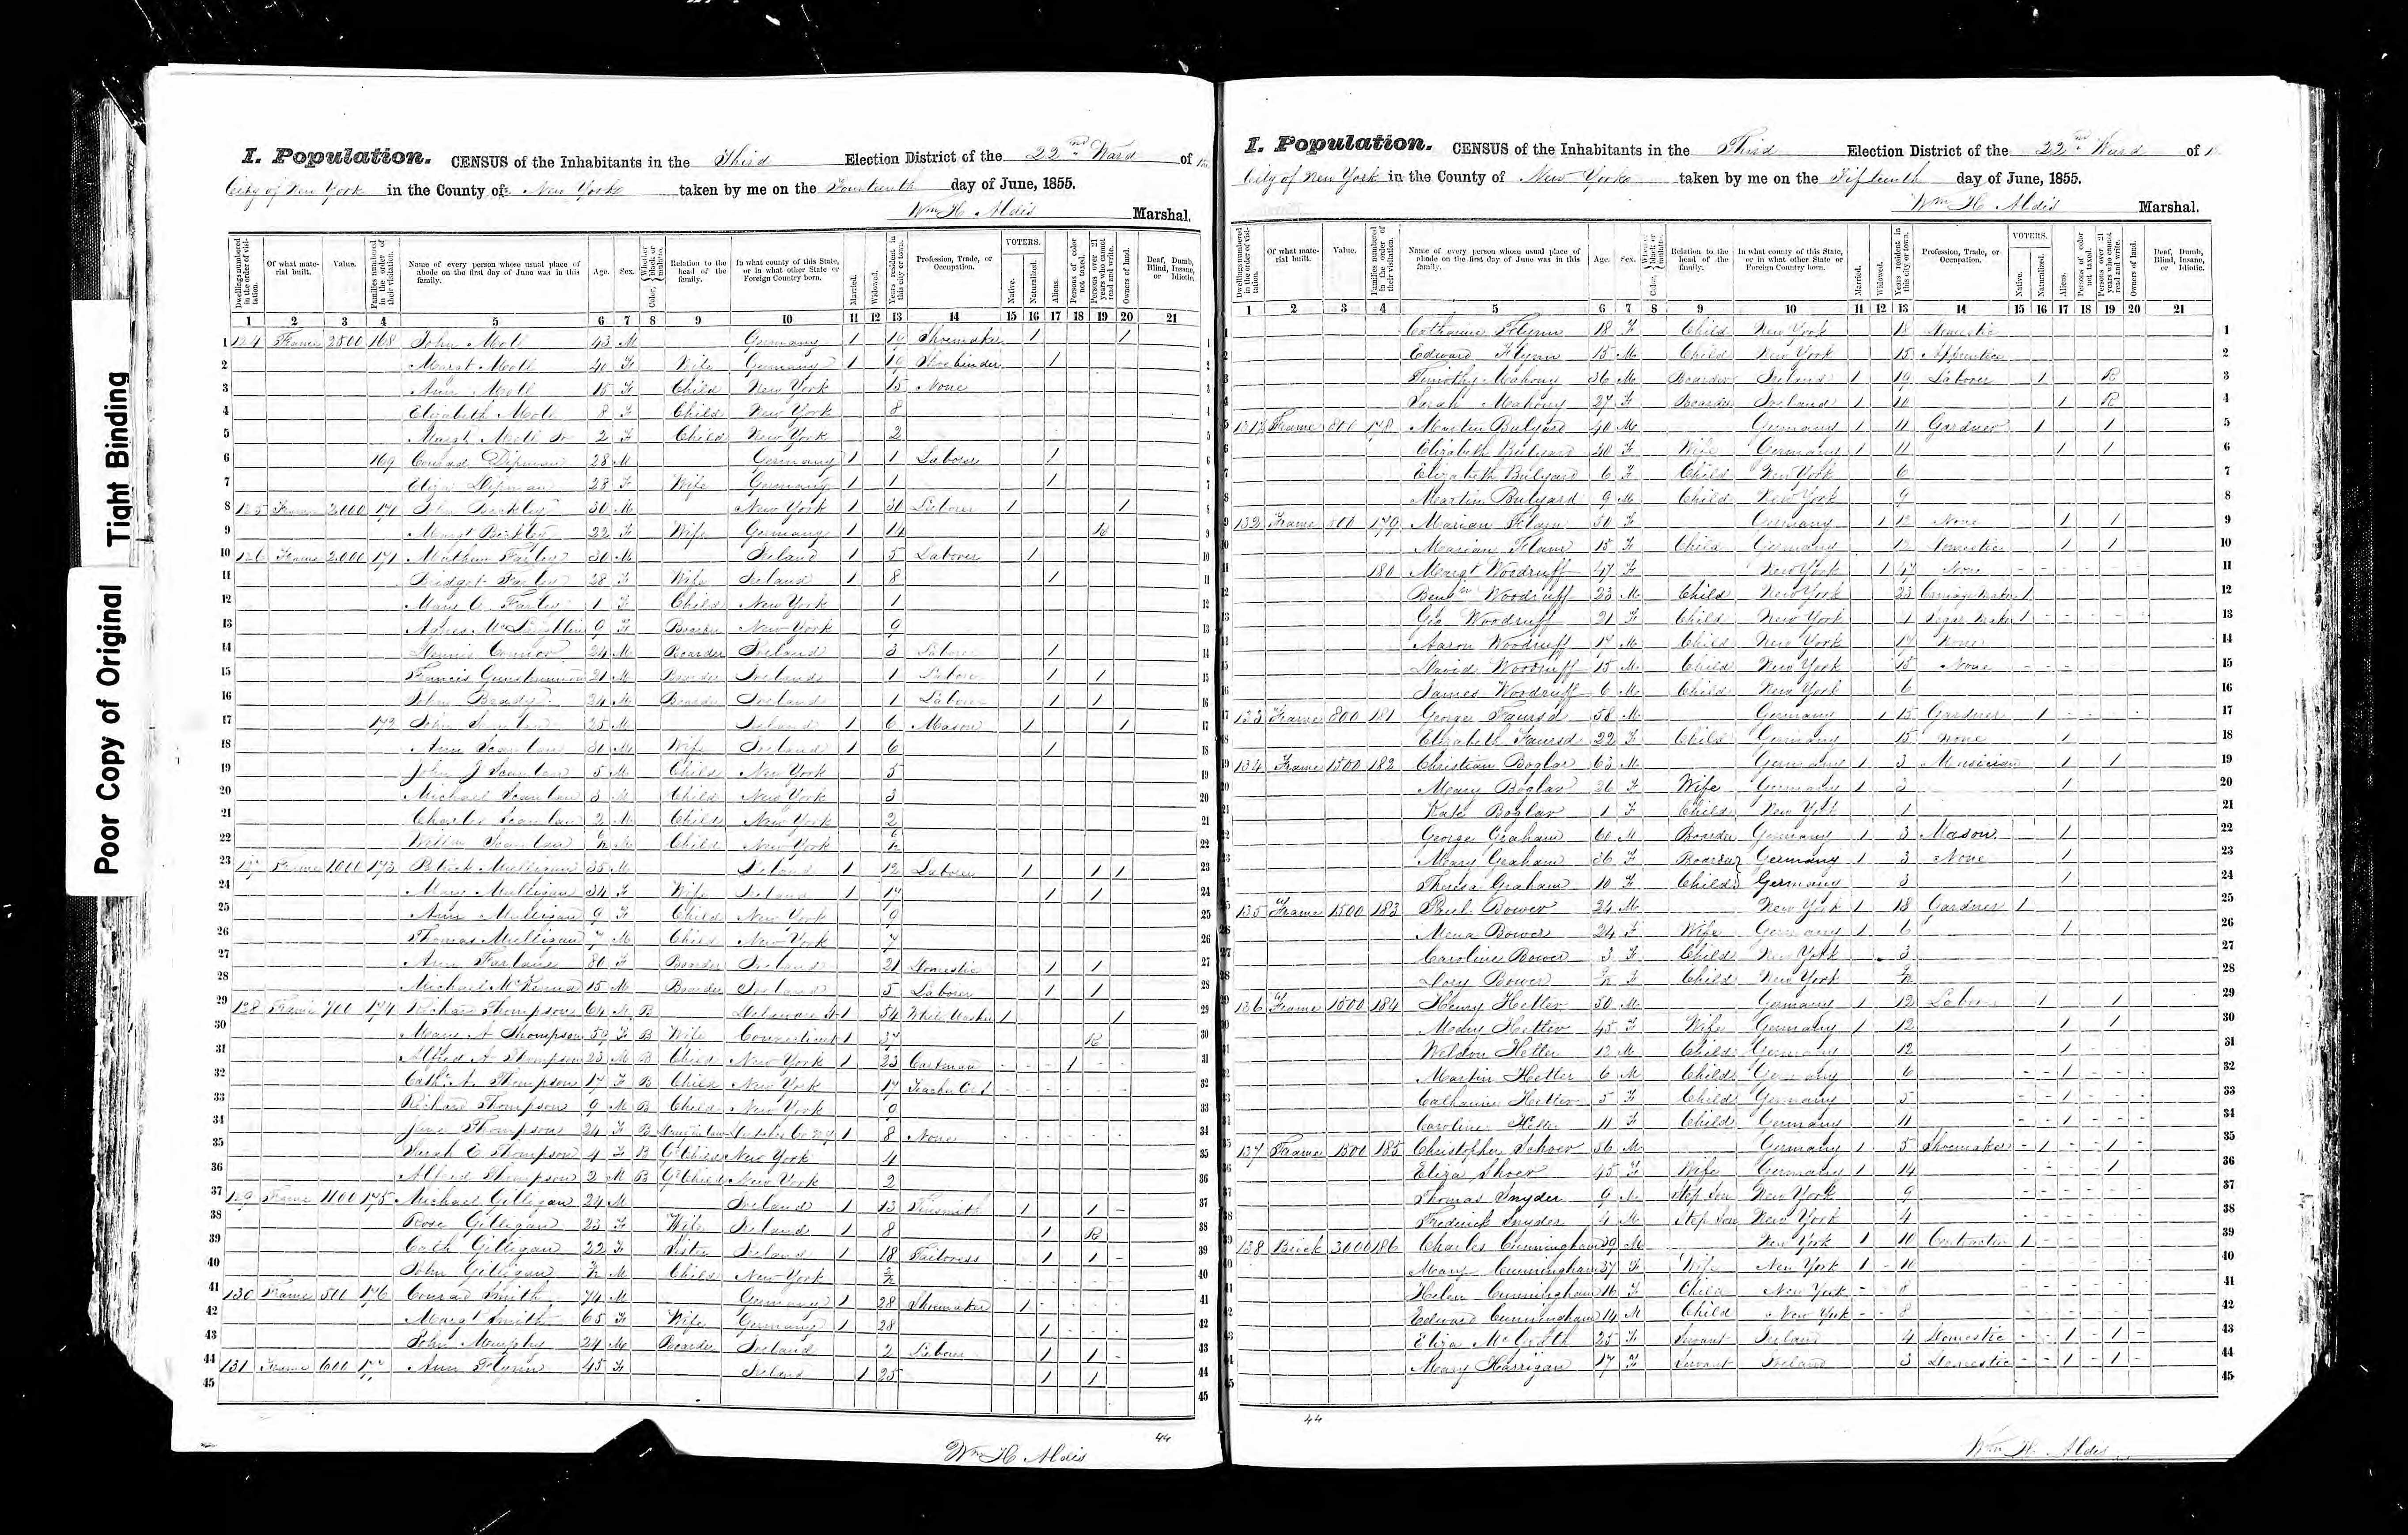 Poor Copy of Original Tight Binding
I. Population. CENSUS of the Inhabitants in the Third Election District of the 22nd Ward of
City of New York in the County of New York taken by me on the Fourteenth day of June, 1855.
Wm H. Aldis Marshal.
Dwellings numbered in the order of visitation. Of what material built. Value. Families numbered in the order of their visitation. Name of every person whose usual place of abode on the first day of June was in this family. Age. Sex. Color, Whether black or mulatto. Relation to the head of the family. In what county of this State, or in what other State or Foreign Country born. Married. Widowed. Years resident in this city or town. Profession, Trade, or Occupation. VOTERS. Native. Naturalized. Aliens. Persons of color not taxed. Persons over 21 years who cannot read and write. Owners of land. Deaf, Dumb, Blind, Insane, or Idiotic.
1 2 3 4 5 6 7 8 9 10 11 12 13 14 15 16 17 18 19 20 21
1 124 Frame 2500 168 John Moll 43 M Germany 1 19 Shoemaker 1 1 1
2 Margt Moll 40 F Wife Germany 1 19 Shoebinder 1 2
3 Ann Moll 15 F Child New York 15 None 3
4 Elizabeth Moll 8 F Child New York 8 4
5 Margt Moll 2 F Child New York 2 5
6 169 Conrad Dipman 28 M Germany 1 1 Laborer 1 6
7 Eliza Dipman 28 F Wife Germany 1 1 1 7
8 125 Frame 2000 30 M New York 1 30 Laborer 1 1 8
9 Margt 22 F Wife Germany 1 14 R 9
10 126 Frame 2000 171 Mathew Farley 30 M Ireland 1 5 Laborer 1 10
11 Bridget Farley 28 F Wife Ireland 1 8 1 11
12 Mary C Farley 1 F Child New York 1 12
13 Agnes McLaughlin 9 F Boarder New York 9 13
14 Dennis Connor 24 M Boarder Ireland 3 Laborer 1 14
15 Francis 21 M Boarder Ireland 1 Laborer 1 1 15
16 John Brady 24 M Boarder Ireland 1 Laborer 1 1 16
17 172 John Scanlan 25 M Ireland 1 6 Mason 1 1 17
18 Ann Scanlan 31 M Wife Ireland 1 6 1 18
19 John J Scanlan 5 M Child New York 5 19
20 Michael Scanlan 3 M Child New York 3 20
21 Charles Scanlan 2 M Child New York 2 21
22 Scanlan M Child New York 22
23 127 Frame 1000 173 Patrick Mulligan 35 M Ireland 1 12 Laborer 1 1 1 23
24 Mary Mulligan 34 F Wife Ireland 1 14 1 1 24
25 Ann Mulligan 9 F Child New York 9 25
26 Thomas Mulligan 7 M Child New York 7 26
27 Ann Farland 80 F Boarder Ireland 21 Domestic 1 1 27
28 Michael 15 M Boarder Ireland 5 Laborer 1 1 28
29 128 Frame 700 174 Richard Thompson 64 M B 1 54 White Washer 1 1 29
30 Mary A Thompson 59 F B Wife Connecticut 1 37 R 30
31 Alfred A Thompson 23 M B Child New York 1 23 Cartman 1 31
32 Cath A. Thompson 17 F B Child New York 17 Teacher 32
33 Richard Thompson 9 M B Child New York 9 33
34 Jane Thompson 24 F B 1 8 None 34
35 Sarah E Thompson 4 F B Gd Child New York 4 35
36 Alfred Thompson 2 M B Gd Child New York 2 36
37 129 Frame 1100 175 Michael Gilligan 24 M Ireland 1 13 Tinsmith 1 1 37
38 Rose Gilligan 23 F Wife Ireland 1 8 1 R 38
39 Cath Gilligan 22 F Sister Ireland 1 18 Tailoress 1 1 39
40 John Gilligan M Child New York 40
41 130 Frame 500 176 Conrad Smith 74 M Germany 1 28 Shoemaker 1 41
42 Margt Smith 65 F Wife Germany 1 28 1 42
43 John 24 M Boarder Ireland 2 Laborer 1 1 43
44 131 Frame 600 Ann Flynn 45 F Ireland 1 25 1 1 44
45 45
44
Wm H. Aldis
I. Population. CENSUS of the Inhabitants in the Third Election District of the 22nd Ward of
City of New York in the County of New York taken by me on the Fifteenth day of June, 1855.
Wm H. Aldis Marshal.
Dwellings numbered in the order of visitation. Of what material built. Value. Families numbered in the order of their visitation. Name of every person whose usual place of abode on the first day of June was in this family. Age. Sex. Color, Whether black or mulatto. Relation to the head of the family. In what county of this State, or in what other State or Foreign Country born. Married. Widowed. Years resident in this city or town. Profession, Trade, or Occupation. VOTERS. Native. Naturalized. Aliens. Persons of color not taxed. Persons over 21 years who cannot read and write. Owners of land. Deaf, Dumb, Blind, Insane, or Idiotic.
1 2 3 4 5 6 7 8 9 10 11 12 13 14 15 16 17 18 19 20 21
1 Catharine Flynn 18 F Child New York 18 Domestic 1
2 Edward Flynn 15 M Child New York 15 Apprentice 2
3 Timothy Mahony 36 M Boarder Ireland 1 19 Laborer 1 R 3
4 Sarah Mahony 27 F Boarder Ireland 1 10 1 R 4
5 Frame 800 178 Martin Bulyard 40 M Germany 1 11 Gardner 1 1 5
6 Elizabeth Bulyard 30 F Wife Germany 1 11 1 1 6
7 Elizabeth Bulyard 6 F Child New York 6 7
8 Martin Bulyard 9 M Child New York 9 8
9 132 Frame 800 179 Marian Flam 50 F Germany 1 12 None 1 1 9
10 Marian Flam 15 F Child Germany 12 Domestic 1 1 10
11 180 Margt Woodruff 47 F New York 1 47 None 11
12 Benjn Woodruff 23 M Child New York 23 Carriage Maker 1 12
13 Geo Woodruff 21 F Child New York 1 Segar Maker 1 13
14 Aaron Woodruff 17 M Child New York 17 None 14
15 David Woodruff 15 M Child New York 15 None 15
16 James Woodruff 6 M Child New York 6 16
17 133 Frame 800 181 George 58 M Germany 1 15 Gardner 1 17
18 Elizabeth 22 F Child Germany 15 None 1 18
19 134 Frame 1500 182 Christian Boglar 63 M Germany 1 3 Musician 1 1 19
20 Mary Boglar 26 F Wife Germany 1 3 1 20
21 Kate Boglar 1 F Child New York 1 21
22 George Graham 60 M Boarder Germany 1 3 Mason 1 22
23 Mary Graham 36 F Boarder Germany 1 3 None 1 23
24 Theresa Graham 10 F Child Germany 3 1 24
25 135 Frame 1500 183 Paul Bower 24 M New York 1 18 Gardner 1 25
26 Mena Bower 24 F Wife Germany 1 6 1 26
27 Caroline Bower 3 F Child New York 3 27
28 Bower F Child New York 28
29 136 Frame 1500 184 Henry Hetler 50 M Germany 1 12 Laborer 1 1 29
30 Mary Hetler 45 F Wife Germany 1 12 1 1 30
31 Weldon Hetler 12 M Child Germany 12 1 31
32 Martin Hetler 6 M Child Germany 6 1 32
33 Catharine Hetler 5 F Child Germany 5 1 33
34 Caroline Hetler 11 F Child Germany 11 1 34
35 137 Frame 1500 185 Christopher Schoer 36 M Germany 1 5 Shoemaker 1 1 35
36 Eliza Shoer 45 F Wife Germany 1 14 1 36
37 Thomas Snyder 9 M Step Son New York 9 37
38 Frederick Snyder 4 M Step Son New York 4 38
39 138 Brick 3000 186 Charles Cunningham 39 M New York 1 10 Contractor 1 39
40 Mary Cunningham 37 F Wife New York 1 10 40
41 Helen Cunningham 16 F Child New York 8 41
42 Edward Cunningham 14 M Child New York 8 42
43 Eliza 25 F Servant Ireland 4 Domestic 1 1 43
44 Mary Harrigan 17 F Servant Ireland 3 Domestic 1 1 44
45 45
44
Wm H. Aldis